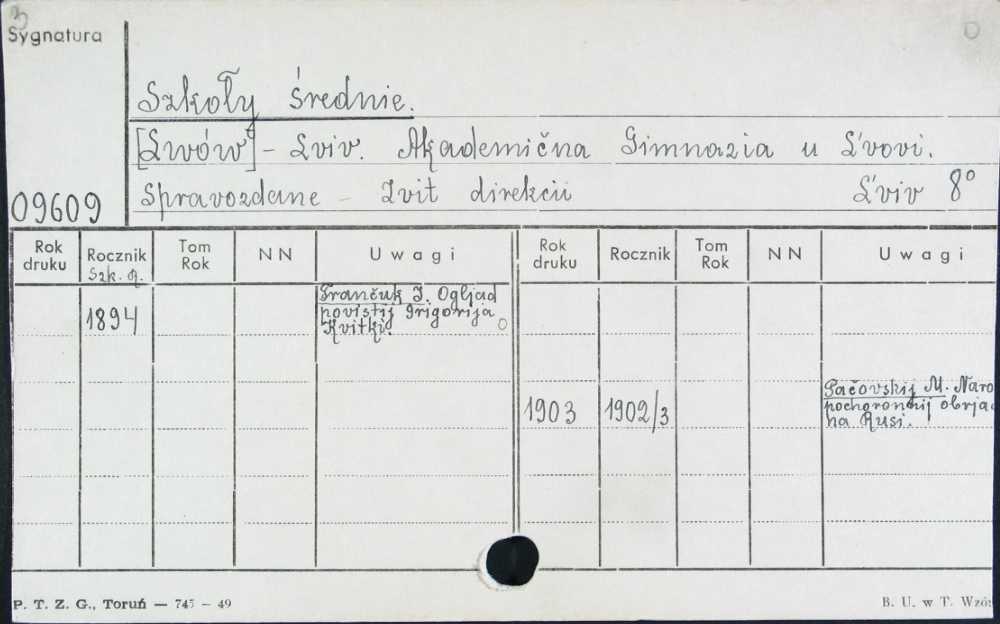 3
Sygnatura
O
Szkoły średnie.
[Lwów] – Lviv. Akademična Gimnazia u L'vovi.
09609
Spravozdane – Zvit direkcii L'viv 8°
Rok druku Rocznik Szk. g. Tom Rok N N Uwagi Rok druku Rocznik Tom Rok N N Uwagi
1894 Frančuk I. Ogljad
povistij Grigorija
Kvitki. O
1903 1902/3 Pačovskij M. Naro
pochoronnij obrja
na Rusi.
P. T. Z. G., Toruń — 745 – 49
B. U. w T. Wzór